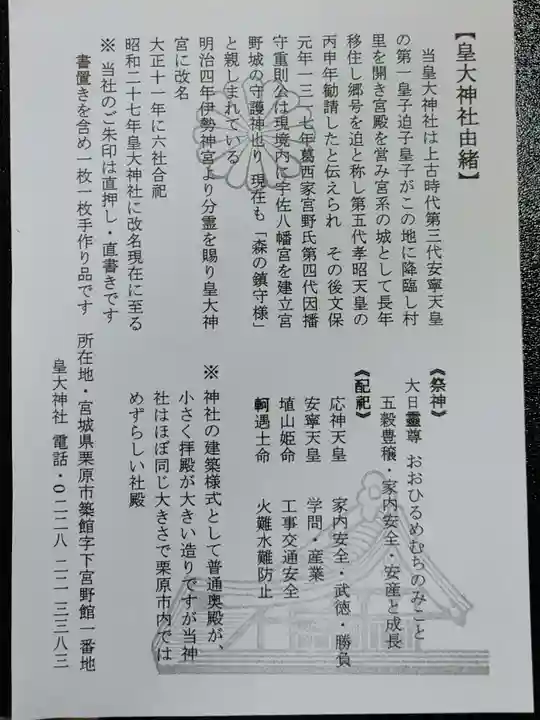 【皇大神社由緒】
当皇大神社は上古時代第三代安寧天皇
の第一皇子迫子皇子がこの地に降臨し村
里を開き宮殿を営み宮系の城として長年
移住し郷号を迫と称し第五代孝昭天皇の
丙申年勧請したと伝えられ その後文保
元年一三一七年葛西家宮野氏第四代因播
守重則公は現境内に宇佐八幡宮を建立宮
野城の守護神也り 現在も「森の鎮守様」
と親しまれている
明治四年伊勢神宮より分霊を賜り皇大神
宮に改名
大正十一年に六社合祀
昭和二十七年皇大神社に改名現在に至る
※ 当社のご朱印は直押し・直書きです
書置きを含め一枚一枚手作り品です
《祭神》
大日靈尊 おおひるめむちのみこと
五穀豊穣・家内安全・安産と成長
《配祀》
応神天皇 家内安全・武徳・勝負
安寧天皇 学問・産業
埴山姫命 工事交通安全
軻遇土命 火難水難防止
※ 神社の建築様式として普通奥殿が、
小さく拝殿が大きい造りですが当神
社はほぼ同じ大きさで栗原市内では
めずらしい社殿
所在地・宮城県栗原市築館字下宮野館一番地
皇大神社 電話・０二二八 二二 三三八三